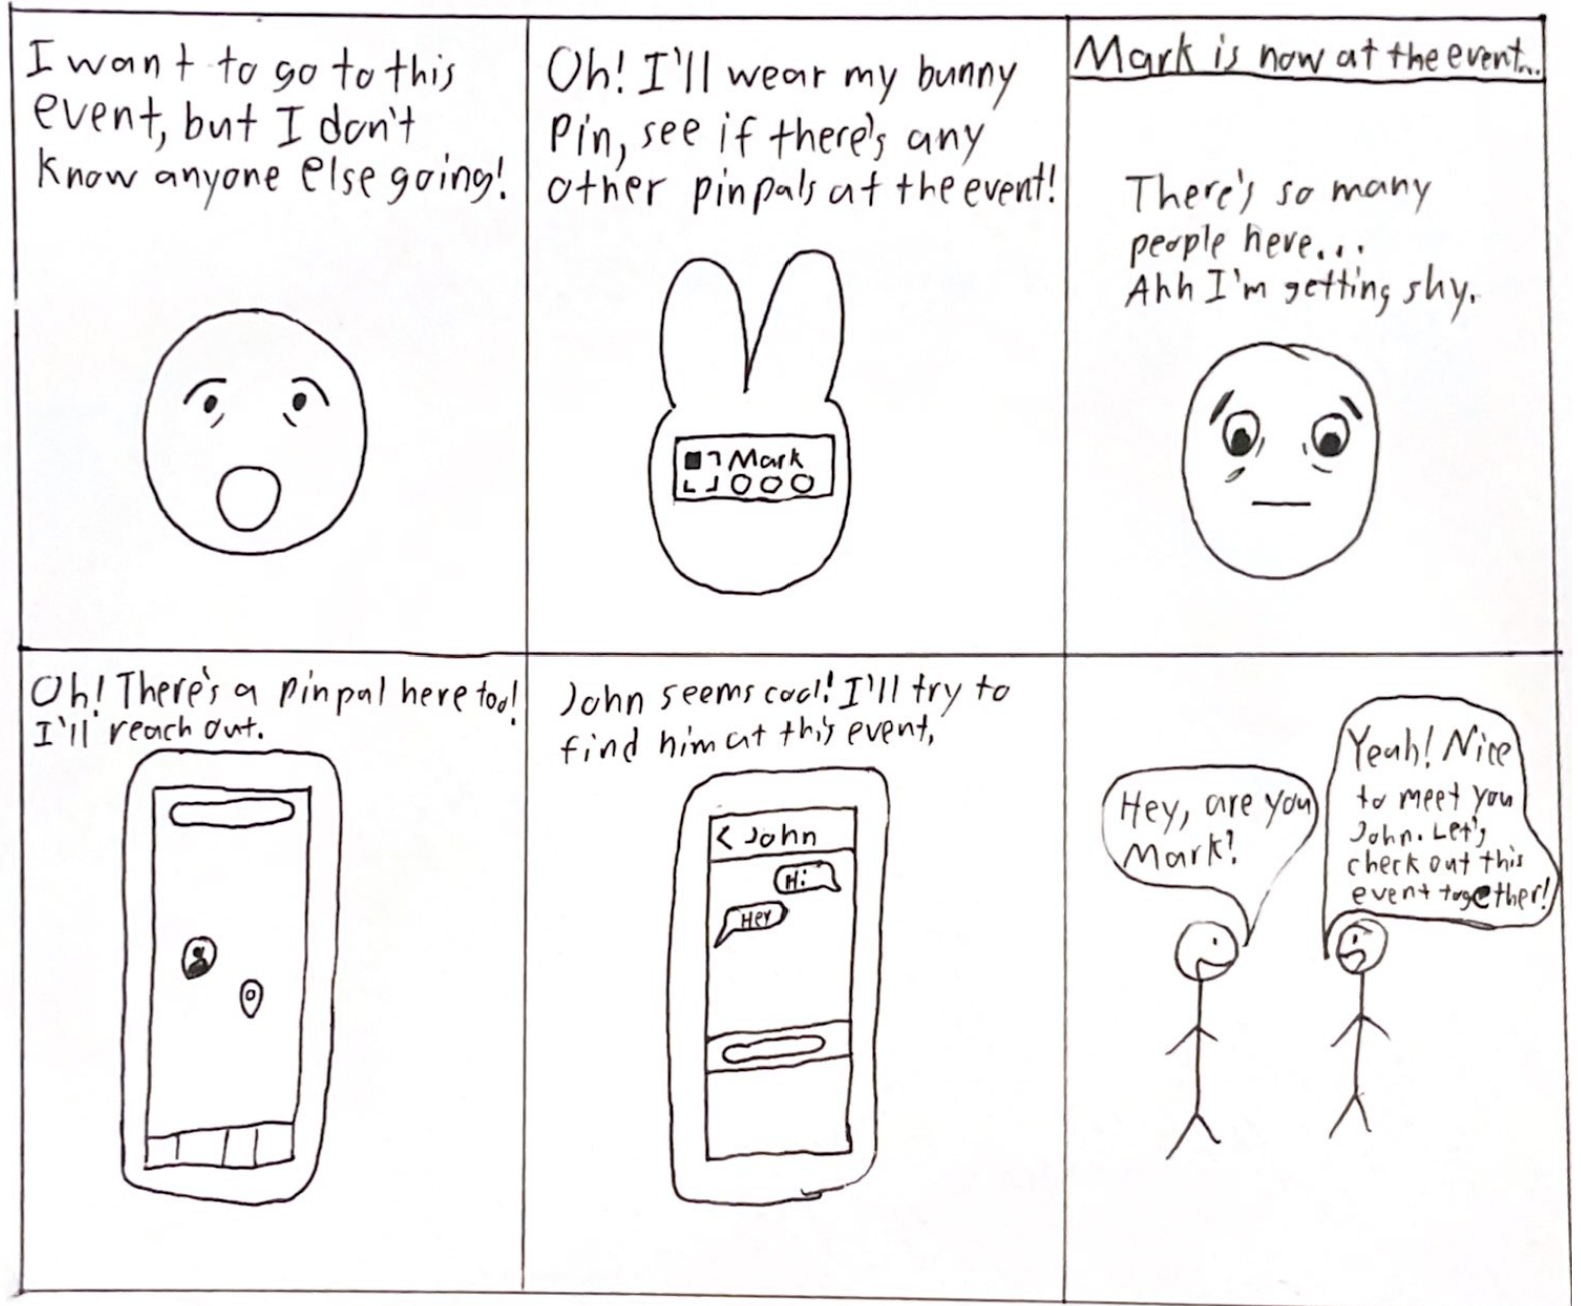 I want to go to this
event, but I don't
know anyone else going!
Oh! I'll wear my bunny
pin, see if there's any
other pinpals at the event!
Mark
Mark is now at the event...
There's so many
people here...
Ahh I'm getting shy.
Oh! There's a pinpal here too!
I'll reach out.
John seems cool! I'll try to
find him at this event,
< John
Hi
Hey
Hey, are you
Mark?
Yeah! Nice
to meet you
John. Let's
check out this
event together!